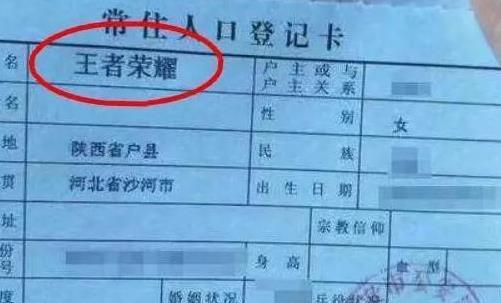 常住人口登记卡
名 王者荣耀 户主或与户主关系
名 性别 女
地 陕西省户县 民族
贯 河北省沙河市 出生日期
址 宗教信仰
份号 身高 血型
度 婚姻状况 兵役状况